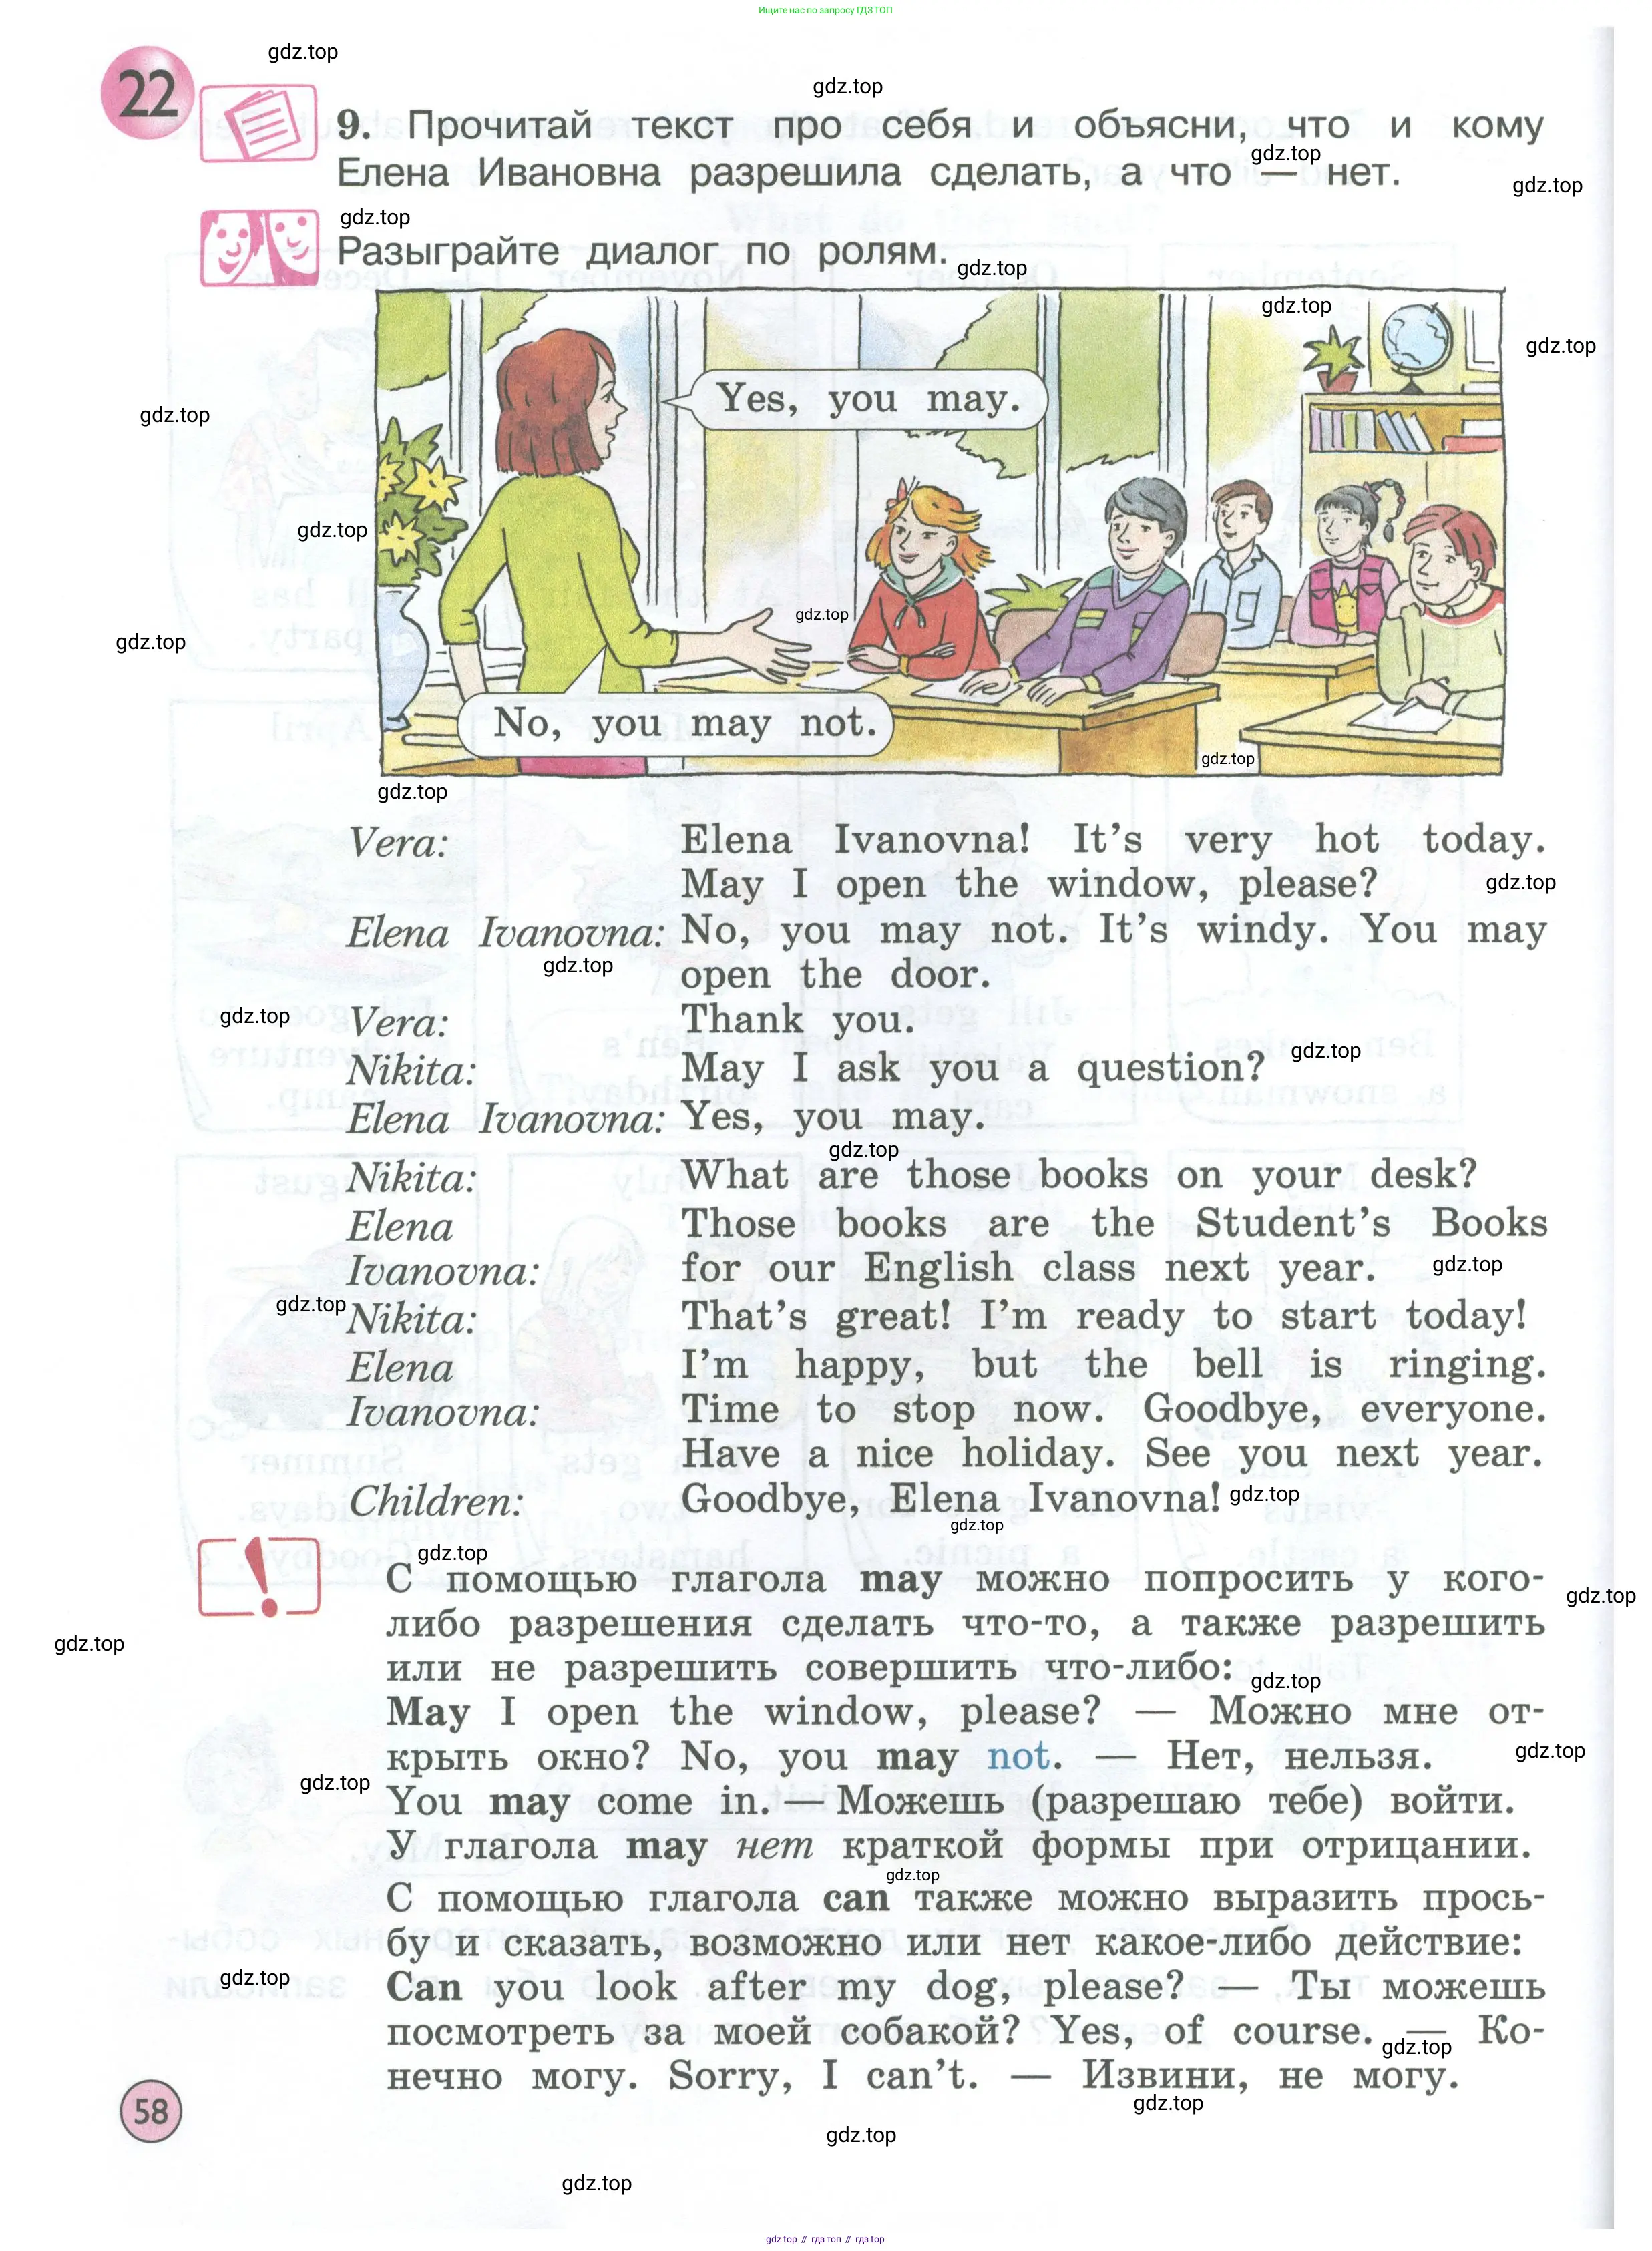 Ищите нас по запросу ГДЗ ТОП
22
gdz.top
gdz.top
9. Прочитай текст про себя и объясни, что и кому
gdz.top
Елена Ивановна разрешила сделать, а что — нет.
gdz.top
gdz.top
Разыграйте диалог по ролям.
gdz.top
gdz.top
gdz.top
Yes, you may.
gdz.top
gdz.top
gdz.top
gdz.top
No, you may not.
gdz.top
gdz.top
Vera: Elena Ivanovna! It's very hot today.
May I open the window, please?
gdz.top
Elena Ivanovna: No, you may not. It's windy. You may
gdz.top
open the door.
gdz.top
Vera: Thank you.
gdz.top
Nikita: May I ask you a question?
Elena Ivanovna: Yes, you may.
gdz.top
Nikita: What are those books on your desk?
Elena Those books are the Student's Books
Ivanovna: for our English class next year.
gdz.top
gdz.top
Nikita: That's great! I'm ready to start today!
Elena I'm happy, but the bell is ringing.
Ivanovna: Time to stop now. Goodbye, everyone.
Have a nice holiday. See you next year.
Children: Goodbye, Elena Ivanovna!
gdz.top
gdz.top
gdz.top
!
С помощью глагола may можно попросить у кого-
gdz.top
либо разрешения сделать что-то, а также разрешить
gdz.top
или не разрешить совершить что-либо:
gdz.top
May I open the window, please? — Можно мне от-
крыть окно? No, you may not. — Нет, нельзя.
gdz.top
gdz.top
You may come in. — Можешь (разрешаю тебе) войти.
У глагола may нет краткой формы при отрицании.
gdz.top
С помощью глагола can также можно выразить прось-
бу и сказать, возможно или нет какое-либо действие:
gdz.top
Can you look after my dog, please? — Ты можешь
посмотреть за моей собакой? Yes, of course. — Ко-
gdz.top
нечно могу. Sorry, I can't. — Извини, не могу.
gdz.top
58
gdz.top
gdz.top
gdz top // гдз топ // гдз top